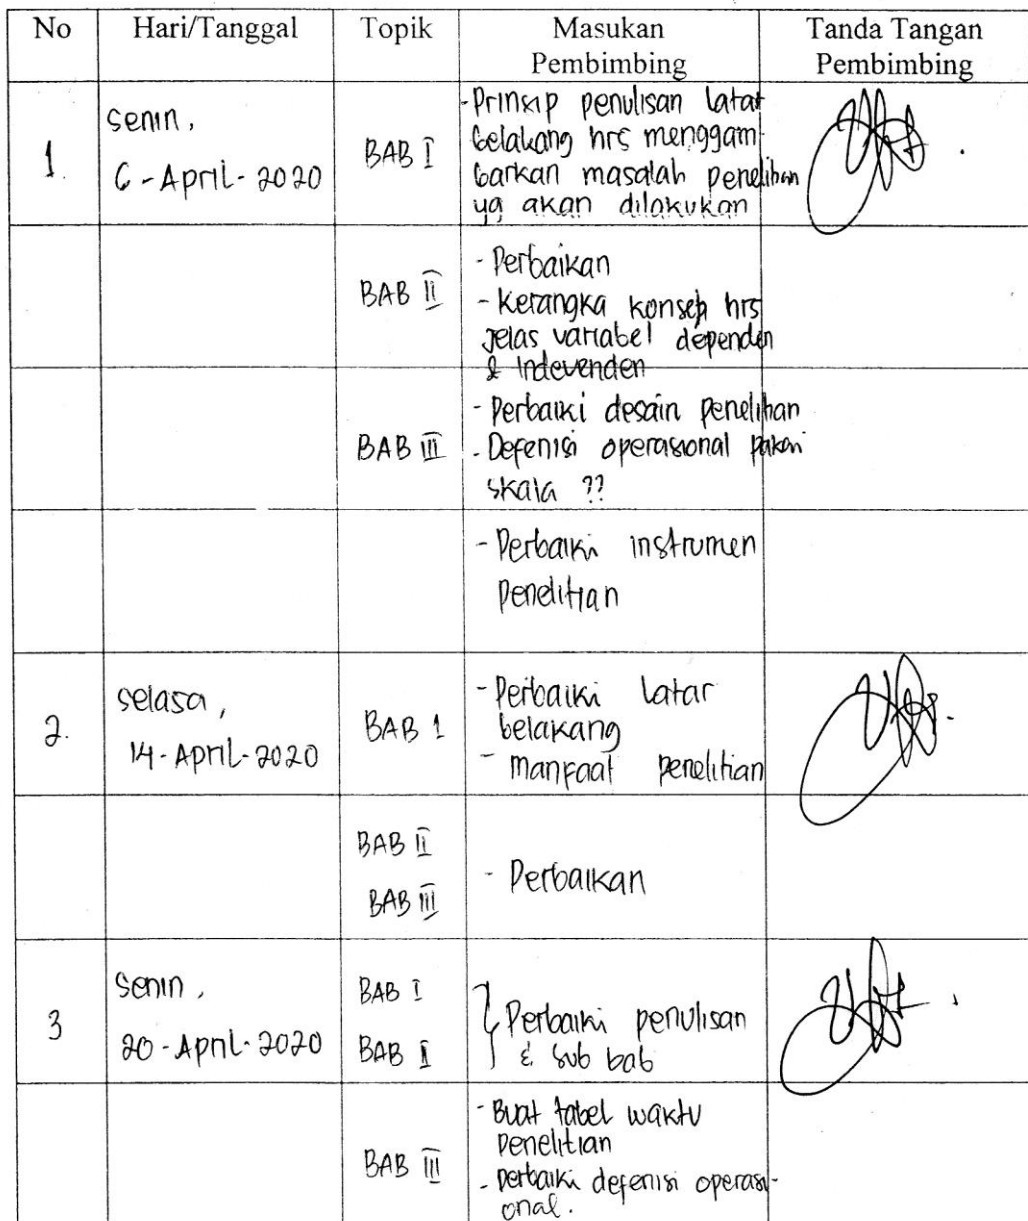 No Hari/Tanggal Topik Masukan Tanda Tangan
Pembimbing Pembimbing
1. Senin, 6-April-2020 BAB I
- Prinsip penulisan latar
belakang hrs menggam-
barkan masalah penelitian
yg akan dilakukan
BAB II
- Perbaikan
- Kerangka konsep hrs
jelas variabel dependen
& Indevenden
BAB III
- Perbaiki desain penelitian
- Defenisi operasional pakai
skala ??
- Perbaiki instrumen
penelitian
2. selasa, 14-April-2020 BAB 1
- Perbaiki latar
belakang
- manfaat penelitian
BAB II
BAB III
- Perbaikan
3 Senin, 20-April-2020
BAB I
BAB I
Perbaiki penulisan
& sub bab
BAB III
- Buat tabel waktu
penelitian
- perbaiki defenisi operasi-
onal.